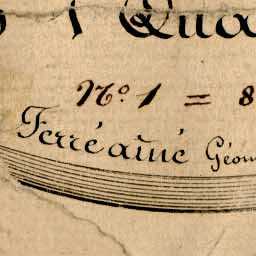 N.º 1 = 8
Ferré aîné Géom